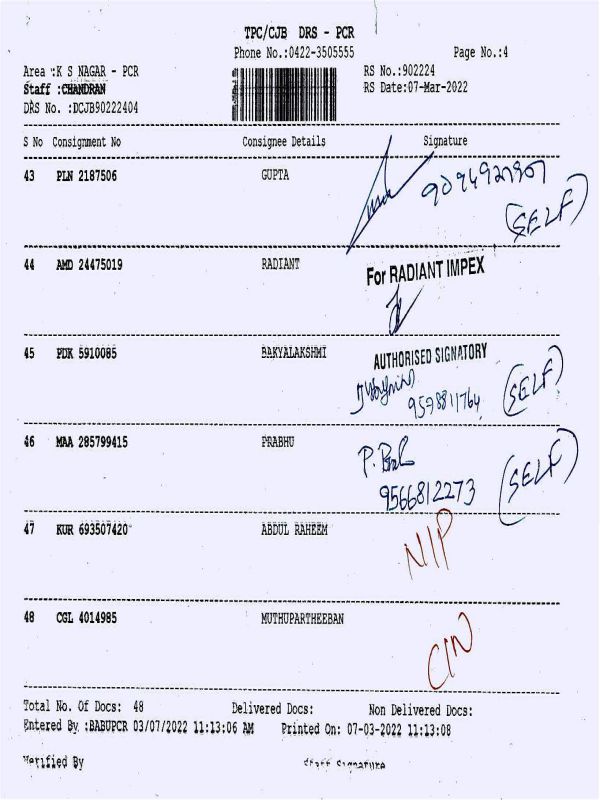 TPC/CJB DRS - PCR
Phone No.:0422-3505555 Page No.:4
Area :K S NAGAR - PCR RS No.:902224
Staff :CHANDRAN RS Date:07-Mar-2022
DRS No. :DCJB90222404
S No Consignment No Consignee Details Signature
43 PLN 2187506 GUPTA
(SELF)
44 AMD 24475019 RADIANT For RADIANT IMPEX
45 PDK 5910085 BAKYALAKSHMI AUTHORISED SIGNATORY
9578811764 (SELF)
46 MAA 285799415 PRABHU
9566812273 (SELF)
47 KUR 693507420 ABDUL RAHEEM NIP
48 CGL 4014985 MUTHUPARTHEEBAN CIN
Total No. Of Docs: 48 Delivered Docs: Non Delivered Docs:
Entered By :BABUPCR 03/07/2022 11:13:06 AM Printed On: 07-03-2022 11:13:08
Verified By Staff Signature